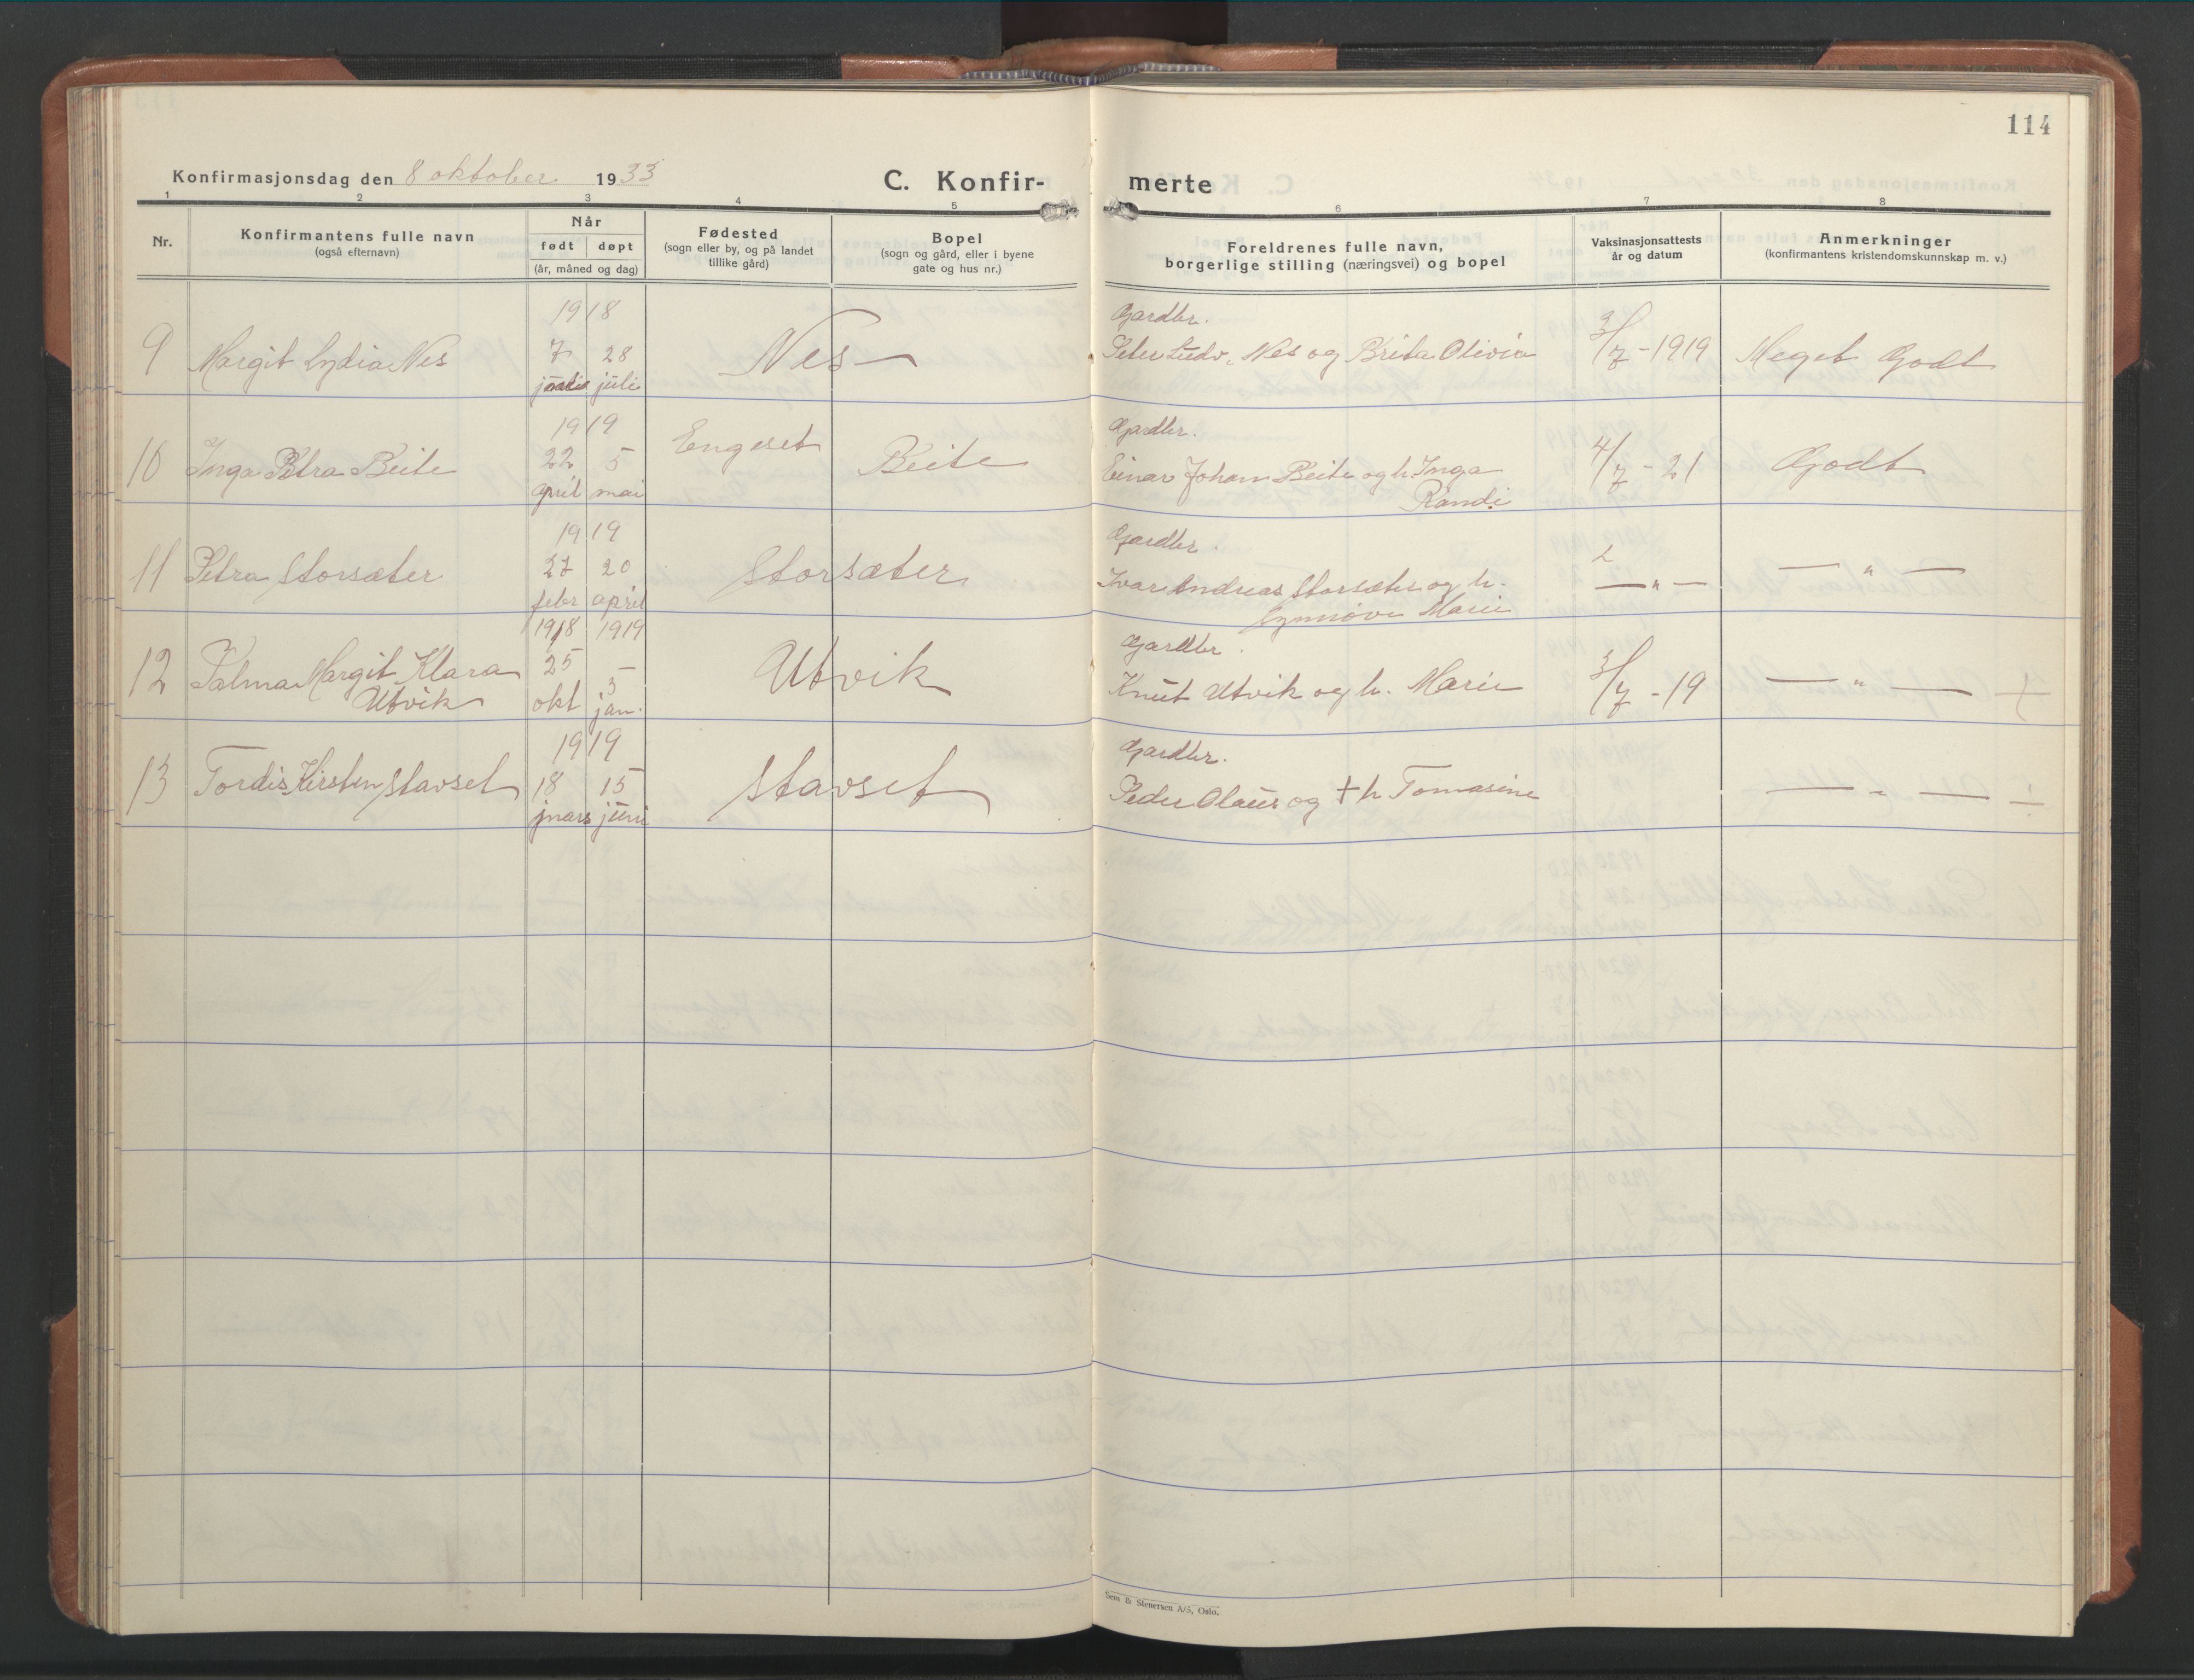 114
Konfirmasjonsdag den 8 oktober 1933
C. Konfir-
merte
1 2 3 4 5 6 7 8
Nr.
Konfirmantens fulle navn
(også efternavn)
Når
født døpt
(år, måned og dag)
Fødested
(sogn eller by, og på landet
tillike gård)
Bopel
(sogn og gård, eller i byene
gate og hus nr.)
Foreldrenes fulle navn,
borgerlige stilling (næringsvei) og bopel
Vaksinasjonsattests
år og datum
Anmerkninger
(konfirmantens kristendomskunnskap m. v.)
1918
Gardbr.
9 Margit Lydia Nes 7 28 Nes Peter Ludv. Nes og Brita Olivia 3/7-1919 Meget Godt
juli
1919
Gardbr.
10 Inga Petra Beite 22 5 Engeset Beite Einar Johan Beite og h. Inga 4/7-21 Godt
april mai Randi
1919
Gardbr.
11 Petra Storsæter 27 20 Storsæter Ivar Andreas Storsæter og h. — " — — " —
febr april Synnøve Marie
1918 1919
Gardbr.
12 Palma Margit Klara 25 5 Utvik Knut Utvik og h. Marie 3/7-19 — " — +
Utvik okt jan.
1919
Gardbr.
13 Tordis Kirsten Stavset 18 15 Stavset Peder Olaus og + h Tomasine — " — ÷
mars juni
Sem & Stenersen A/S, Oslo.